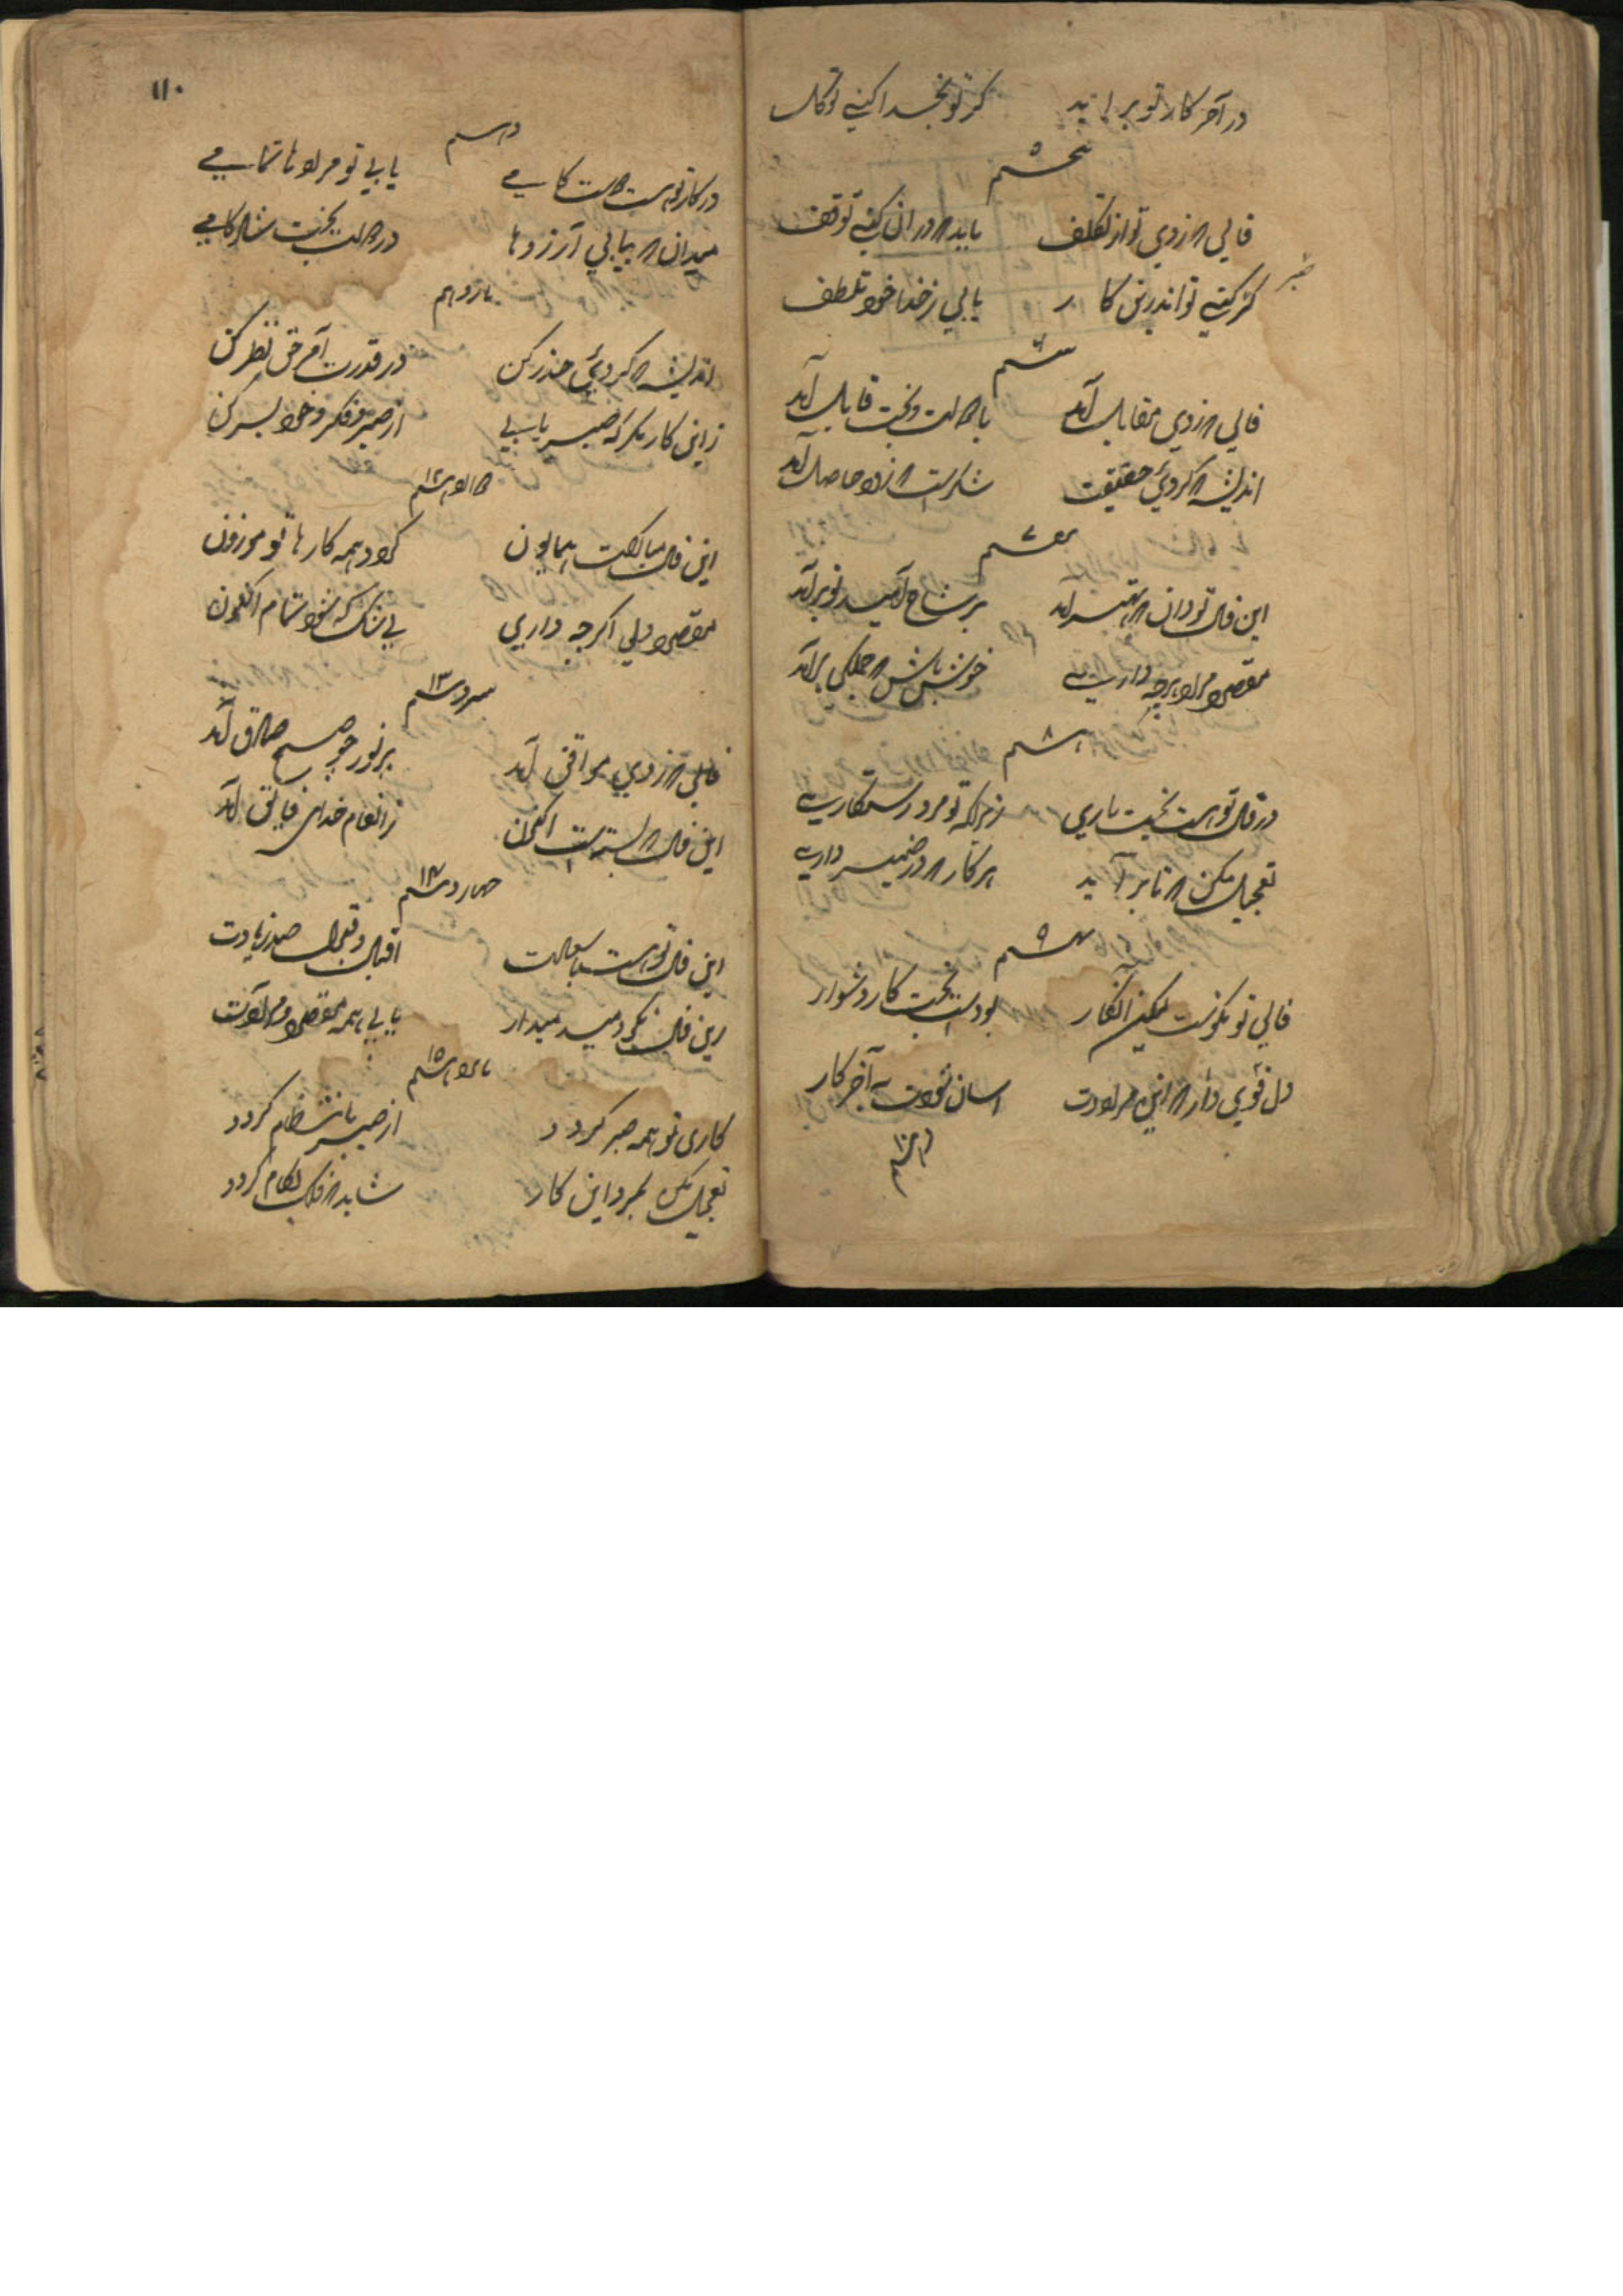 در آخر کار تو بر آید گر تو بخدا کنی توکل
پنجم ۵
فالی که زدی تو از تکلف باید که در آن کنی توقف
گر صبر کنی تو اندرین کار یابی ز خدا خود تلطف
ششم ۶
فالی که زدی مقابل آمد با دولت و بخت قابل آمد
اندیشه که کردی حقیقت شکرست که زود حاصل آمد
هفتم ۷
این فال تو دان که بهتر آمد بر شاخ امید نو بر آمد
مقصود و مراد هرچه داری خوش باش که جملگی برآمد
هشتم ۸
در فال تو هست بخت یاری زیراکه تو مرد رستکاری
تعجیل مکن که تا بر آید هر کار که در ضمیر داری
نهم ۹
فالی تو نکوست لیکن انکار بودست نخست کار دشوار
دل قوی دار که این مرادت اسان شودت به آخر کار
دهم ۱۰
۱۱۰
دهم
در کار تو هست دولت کامی یابی تو مرادها تمامی
میدان که بیابی آرزوها در دولت بخت شادکامی
یازدهم
اندیشه که کردی حذر کن در قدرت حق نظر کن
زاین کار مگر که صبر یابی از صبر و فکر خود بسر کن
دوازدهم ۱۲
این فال مبارکست همایون گردد همه کارها تو موزون
مقصود دلی اگرچه داری بی شک که شود تمام اکنون
سیزدهم ۱۳
فالی که زدی موافق آمد پرنور چو صبح صادق آمد
این فال که البته است اکنون ز انعام خدای فایق آمد
چهاردهم ۱۴
این فال تو هست با سعادت اقبال و قبول صد زیادت
زین فال نکو امید میدار یابی همه مقصود و مرادت
پانزدهم ۱۵
کاری تو همه صبر گردد از صبر بانتظام گردد
تعجیل مکن بمرد این کار شاید که فلک بکام گردد